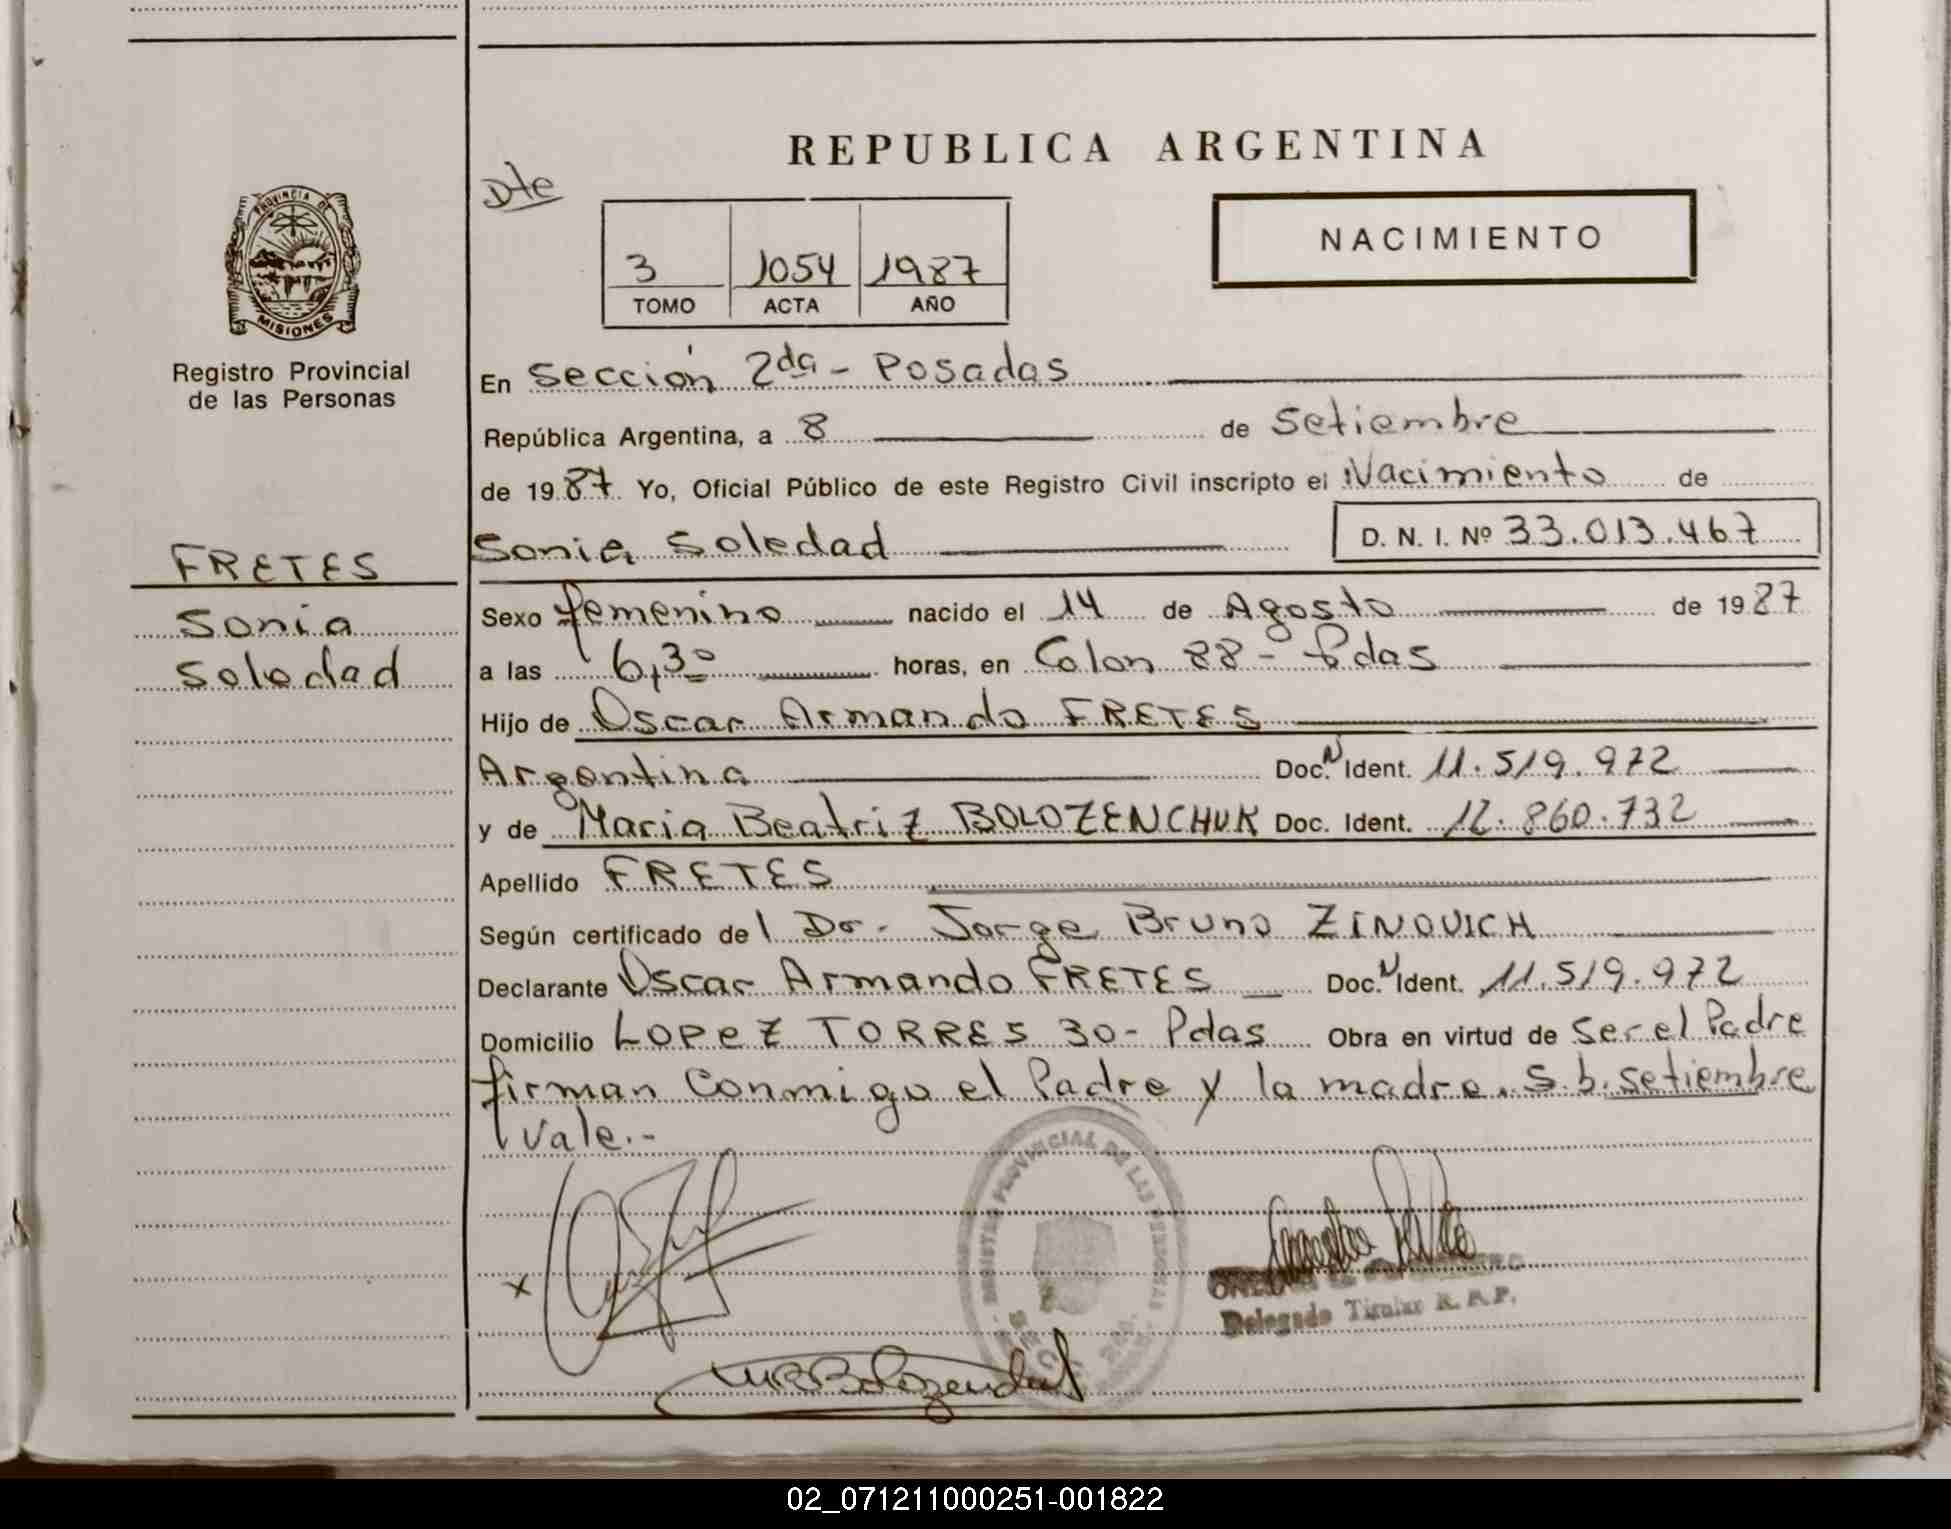 REPUBLICA ARGENTINA
Dte
NACIMIENTO
3 1054 1987
TOMO ACTA AÑO
PROVINCIA DE
MISIONES
Registro Provincial
de las Personas
FRETES
Sonia
Soledad
En Sección 2da - Posadas
República Argentina, a 8 de Setiembre
de 1987 Yo, Oficial Público de este Registro Civil inscripto el Nacimiento de
Sonia Soledad D. N. I. Nº 33.013.467
Sexo femenino nacido el 14 de Agosto de 1987
a las 6,30 horas, en Colon 88 - Pdas
Hijo de Oscar Armando FRETES
Argentina Doc. N Ident. 11.519.972
y de Maria Beatriz BOLOZENCHUK Doc. Ident. 12.860.732
Apellido FRETES
Según certificado del Dr. Jorge Bruno ZINOVICH
Declarante Oscar Armando FRETES Doc. N Ident. 11.519.972
Domicilio LOPEZ TORRES 30 - Pdas Obra en virtud de Ser el Padre
firman Conmigo el Padre y la madre. S.b. setiembre
Vale.-
REGISTRO PROVINCIAL DE LAS PERSONAS
x
Delegado Titular R. P. P.
02_071211000251-001822